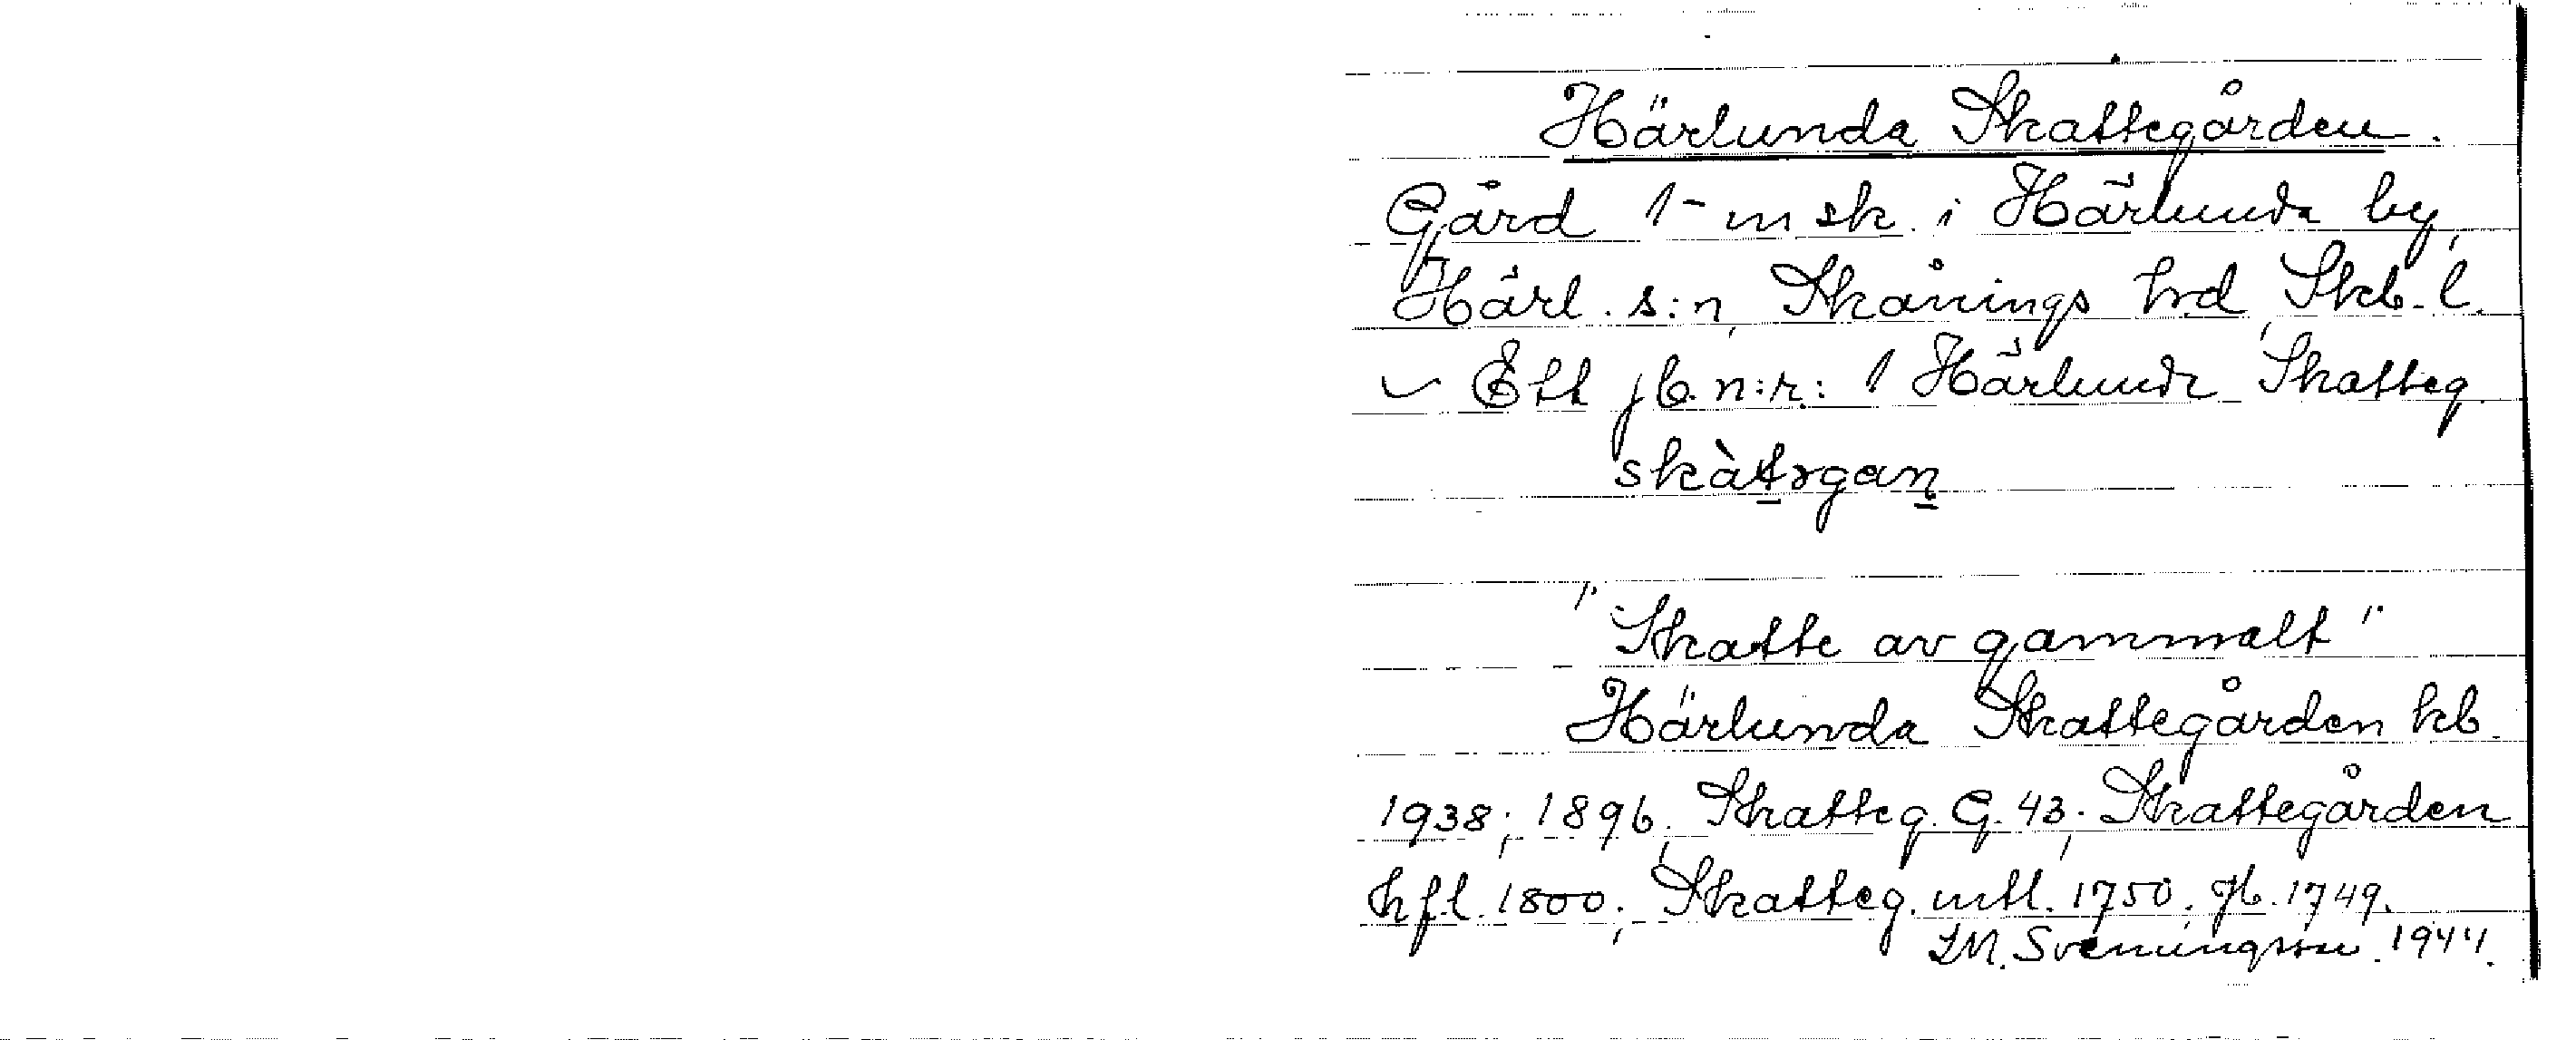 Härlunda Skattegården.
Gård 1 - m sk. i Härlunda by,
Härl. s:n, Skånings hd, Skb. l.
Ett jb. n:r: 1 Härlunda Skatteg.
skàtəgan
"Skatte av gammalt"
Härlunda Skattegården kb.
1938; 1896, Skatteg. G. 43; Skattegården
hfl. 1800; Skatteg. mtl. 1750. Jb. 1749.
I.M. Svenningsson. 1944.